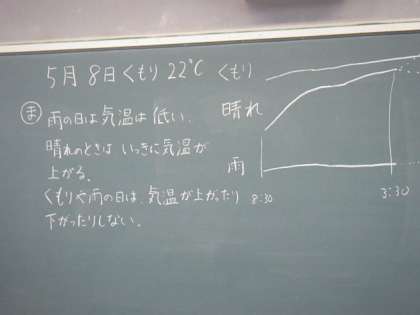 5月8日くもり 22℃
くもり
ま 雨の日は気温は低い.
晴れのときは いっきに気温が
上がる.
くもりや雨の日は、気温が上がったり
下がったりしない.
晴れ
雨
8:30
3:30